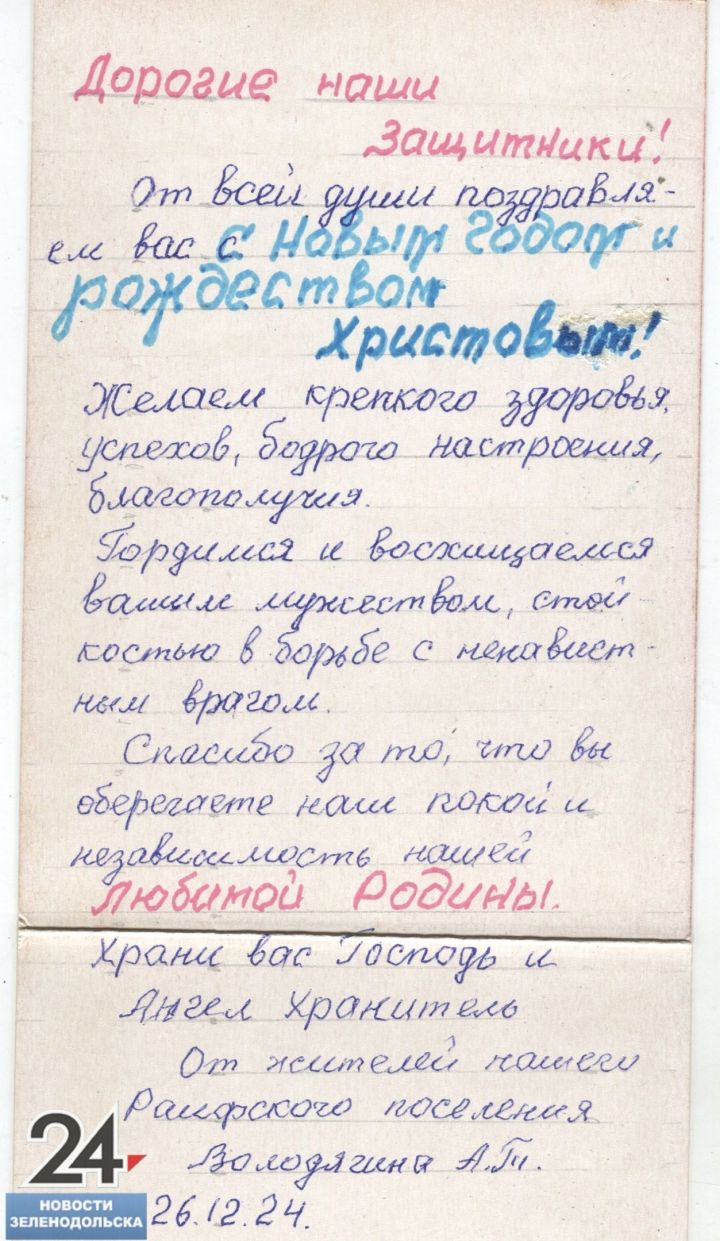 Дорогие наши
Защитники!
От всей души поздравля-
ем вас с с Новым Годом и
рождеством
Христовым!
Желаем крепкого здоровья,
успехов, бодрого настроения,
благополучия.
Гордимся и восхищаемся
вашим мужеством, стой-
костью в борьбе с ненавист-
ным врагом.
Спасибо за то, что вы
оберегаете наш покой и
независимость нашей
любимой Родины.
Храни вас Господь и
Ангел Хранитель
От жителей нашего
Раифского поселения
Володягина А.Т.
26.12.24.
24
НОВОСТИ
ЗЕЛЕНОДОЛЬСКА